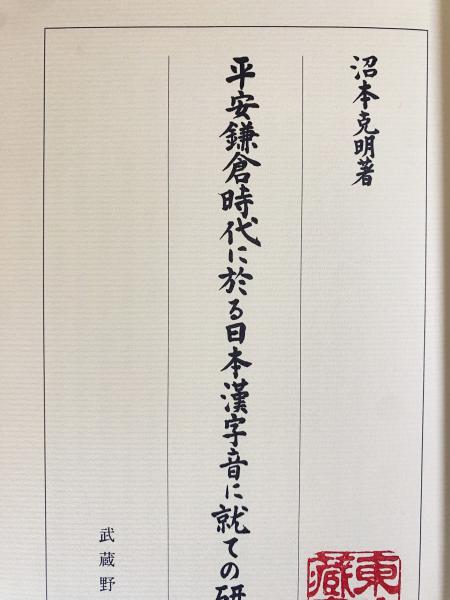 沼本克明著
平安鎌倉時代に於る日本漢字音に就ての研
武蔵野
東
藏